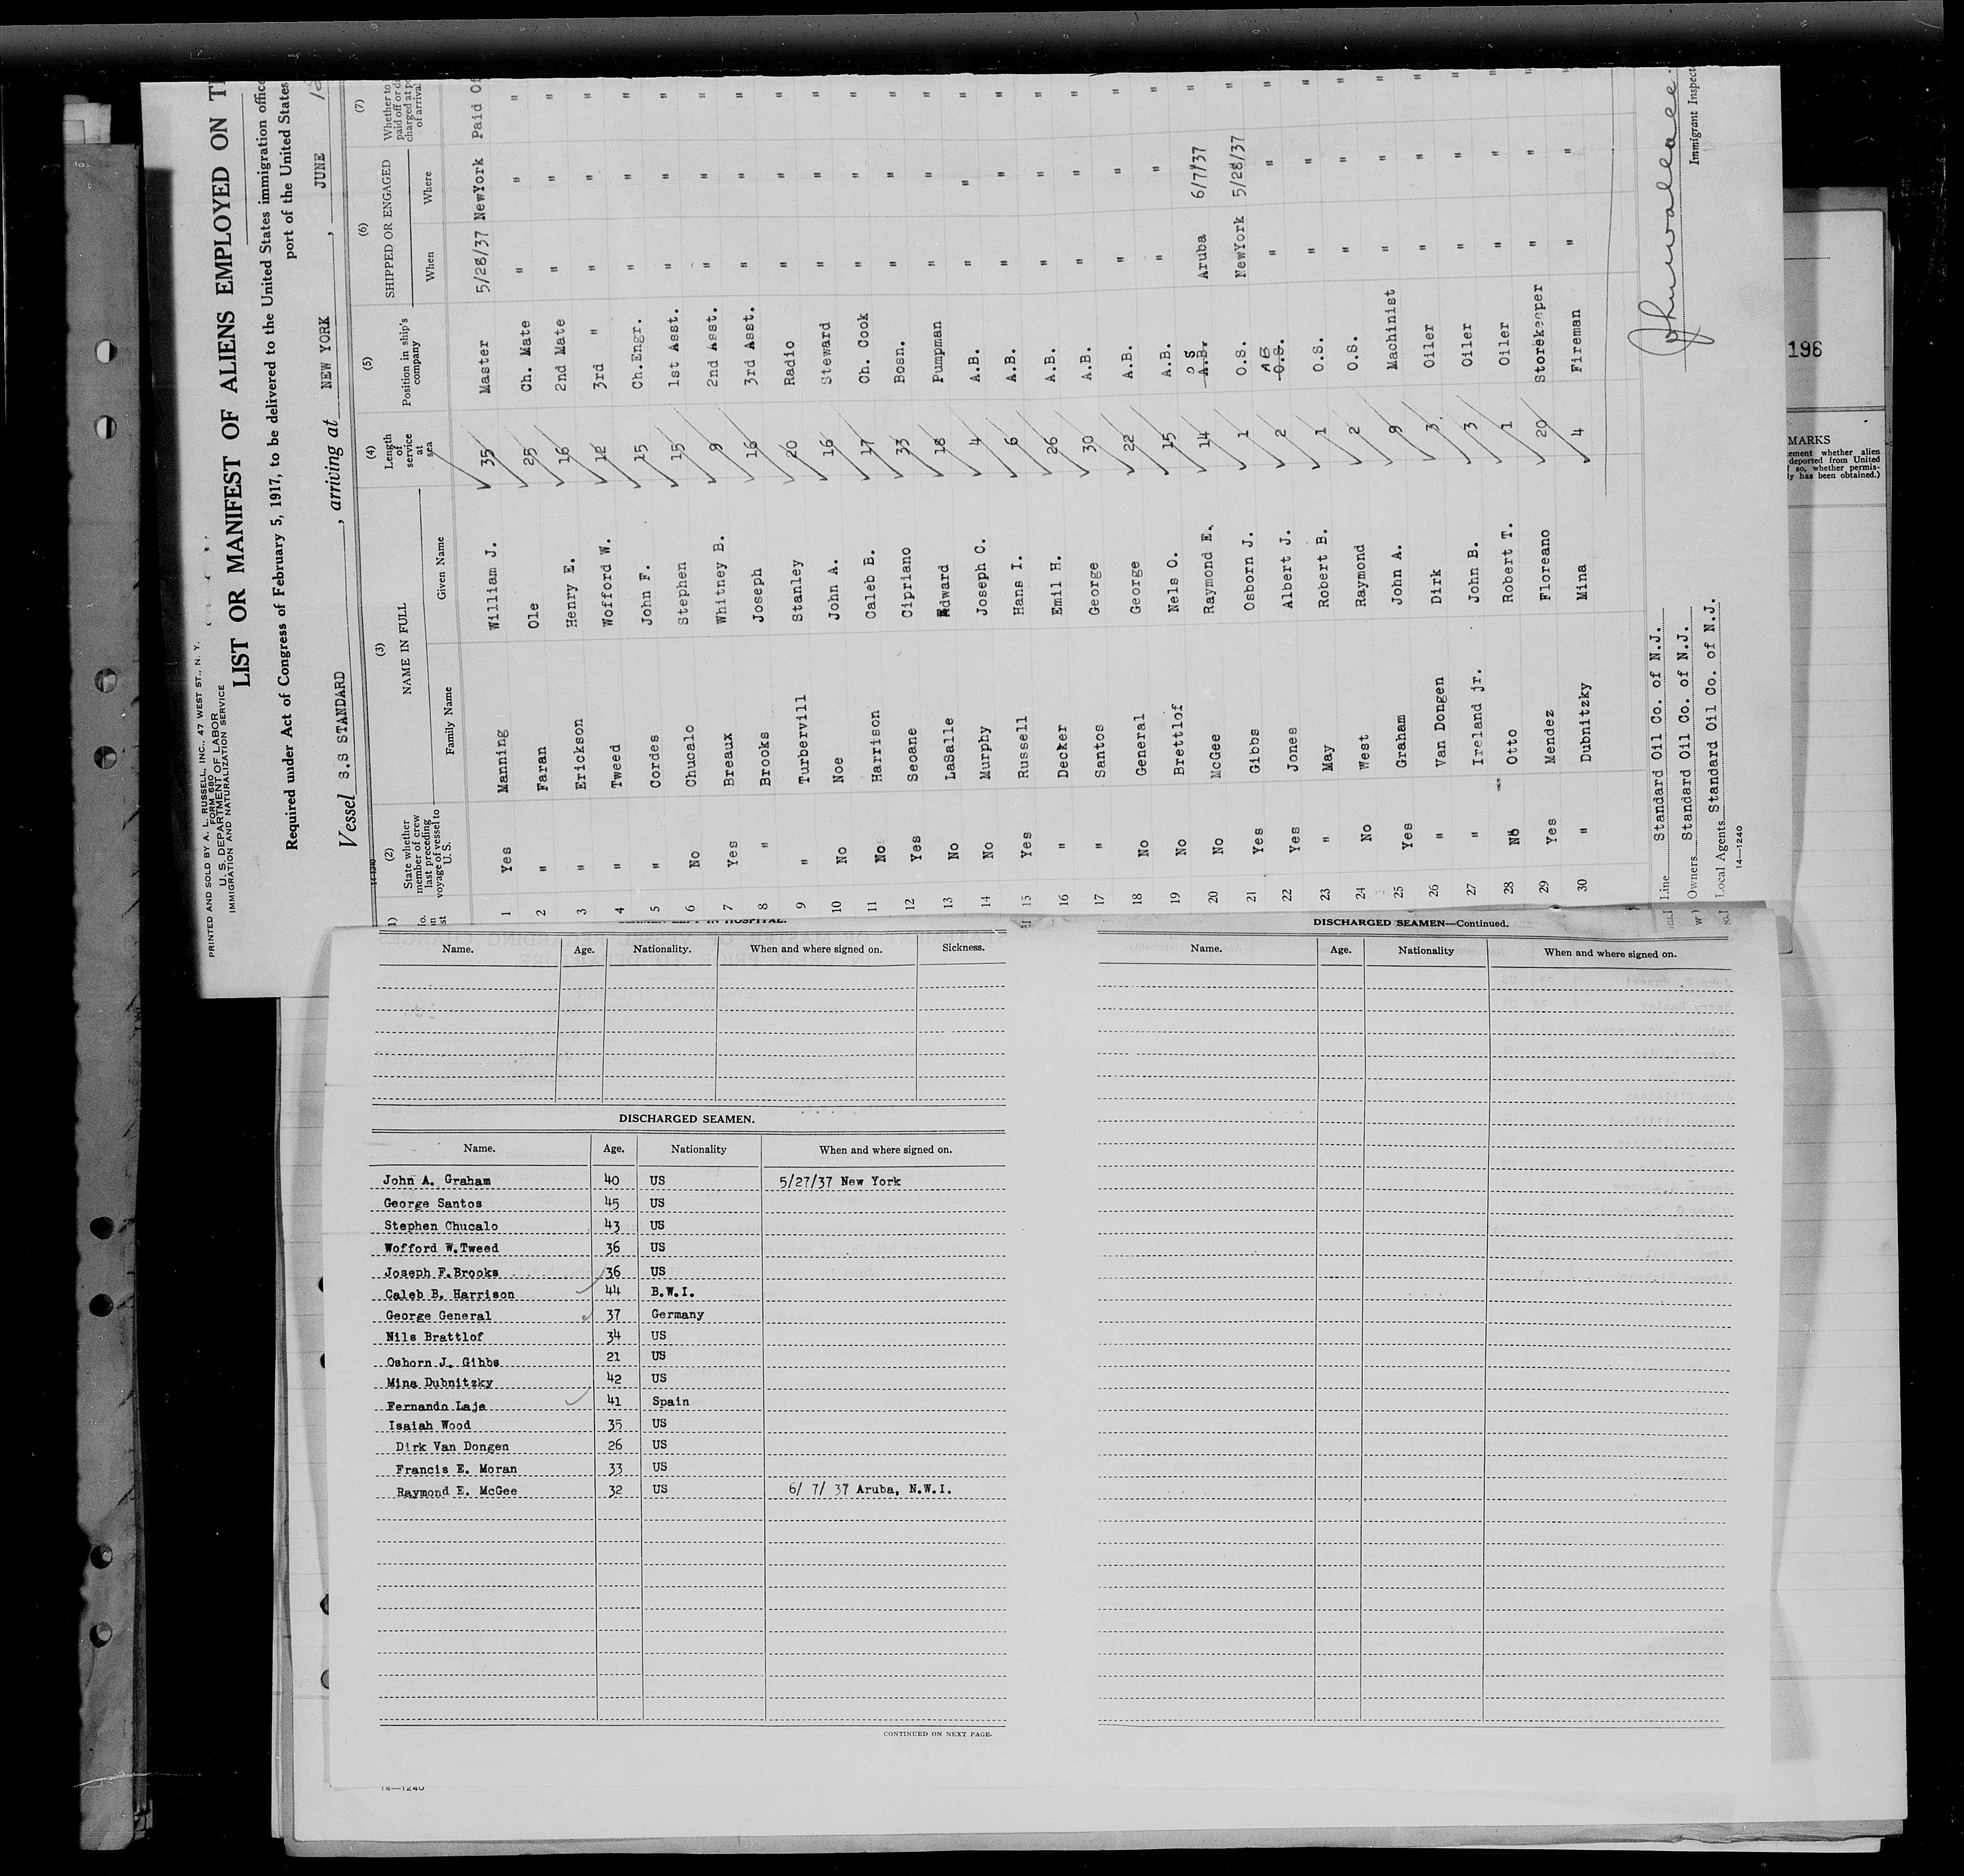 PRINTED AND SOLD BY A. L. RUSSELL, INC., 47 WEST ST., N. Y.
FORM 680
U. S. DEPARTMENT OF LABOR
IMMIGRATION AND NATURALIZATION SERVICE
LIST OR MANIFEST OF ALIENS EMPLOYED ON
Required under Act of Congress of February 5, 1917, to be delivered to the United States immigration
port of the United States
Vessel S.S STANDARD , arriving at NEW YORK , JUNE
14-1240
(2) (3) (4) (5) (6) (7)
State whether member of crew last preceding voyage of vessel to U. S. NAME IN FULL Length of service at sea Position in ship's company SHIPPED OR ENGAGED Whether to
Family Name Given Name When Where
1 Yes Manning William J. 35 Master 5/28/37 NewYork Paid
2 " Faran Ole 25 Ch. Mate " " "
3 " Erickson Henry E. 16 2nd Mate " " "
4 " Tweed Wofford W. 12 3rd " " " "
5 " Cordes John F. 15 Ch.Engr. " " "
6 No Chucalo Stephen 15 1st Asst. " " "
7 Yes Breaux Whitney B. 9 2nd Asst. " " "
8 " Brooks Joseph 16 3rd Asst. " " "
9 " Turbervill Stanley 20 Radio " " "
10 No Noe John A. 16 Steward " " "
11 No Harrison Caleb B. 17 Ch. Cook " " "
12 Yes Seoane Cipriano 33 Bosn. " " "
13 No LaSalle Edward 18 Pumpman " " "
14 No Murphy Joseph C. 4 A.B. " " "
15 Yes Russell Hans I. 6 A.B. " " "
16 " Decker Emil H. 26 A.B. " " "
17 " Santos George 30 A.B. " " "
18 No General George 22 A.B. " " "
19 No Brettlof Nels O. 15 A.B. " " "
20 No McGee Raymond E. 14 A.B. O S Aruba 6/7/37 "
21 Yes Gibbs Osborn J. 1 O.S. NewYork 5/28/37 "
22 Yes Jones Albert J. 2 O.S. AB " " "
23 " May Robert B. 1 O.S. " " "
24 No West Raymond 2 O.S. " " "
25 Yes Graham John A. 9 Machinist " " "
26 " Van Dongen Dirk 3 Oiler " " "
27 " Ireland jr. John B. 3 Oiler " " "
28 No Otto Robert T. 1 Oiler " " "
29 Yes Mendez Floreano 20 Storekeeper " " "
30 " Dubnitzky Mina 4 Fireman " " "
Line Standard Oil Co. of N.J.
Owners Standard Oil Co. of N.J.
Local Agents Standard Oil Co. of N.J.
14—1240
Immigrant
196
MARKS
whether alien
deported from United
so, whether permis-
has been obtained.)
Name. Age. Nationality. When and where signed on. Sickness.
DISCHARGED SEAMEN.
Name. Age. Nationality When and where signed on.
John A. Graham 40 US 5/27/37 New York
George Santos 45 US
Stephen Chucalo 43 US
Wofford W.Tweed 36 US
Joseph F.Brooks 36 US
Caleb B. Harrison 44 B.W.I.
George General 37 Germany
Nils Brattlof 34 US
Osborn J. Gibbs 21 US
Mina Dubnitzky 42 US
Fernando Laje 41 Spain
Isaiah Wood 35 US
Dirk Van Dongen 26 US
Francis E. Moran 33 US
Raymond E. McGee 32 US 6/ 7/ 37 Aruba, N.W.I.
CONTINUED ON NEXT PAGE.
14—1240
DISCHARGED SEAMEN—Continued.
Name. Age. Nationality When and where signed on.